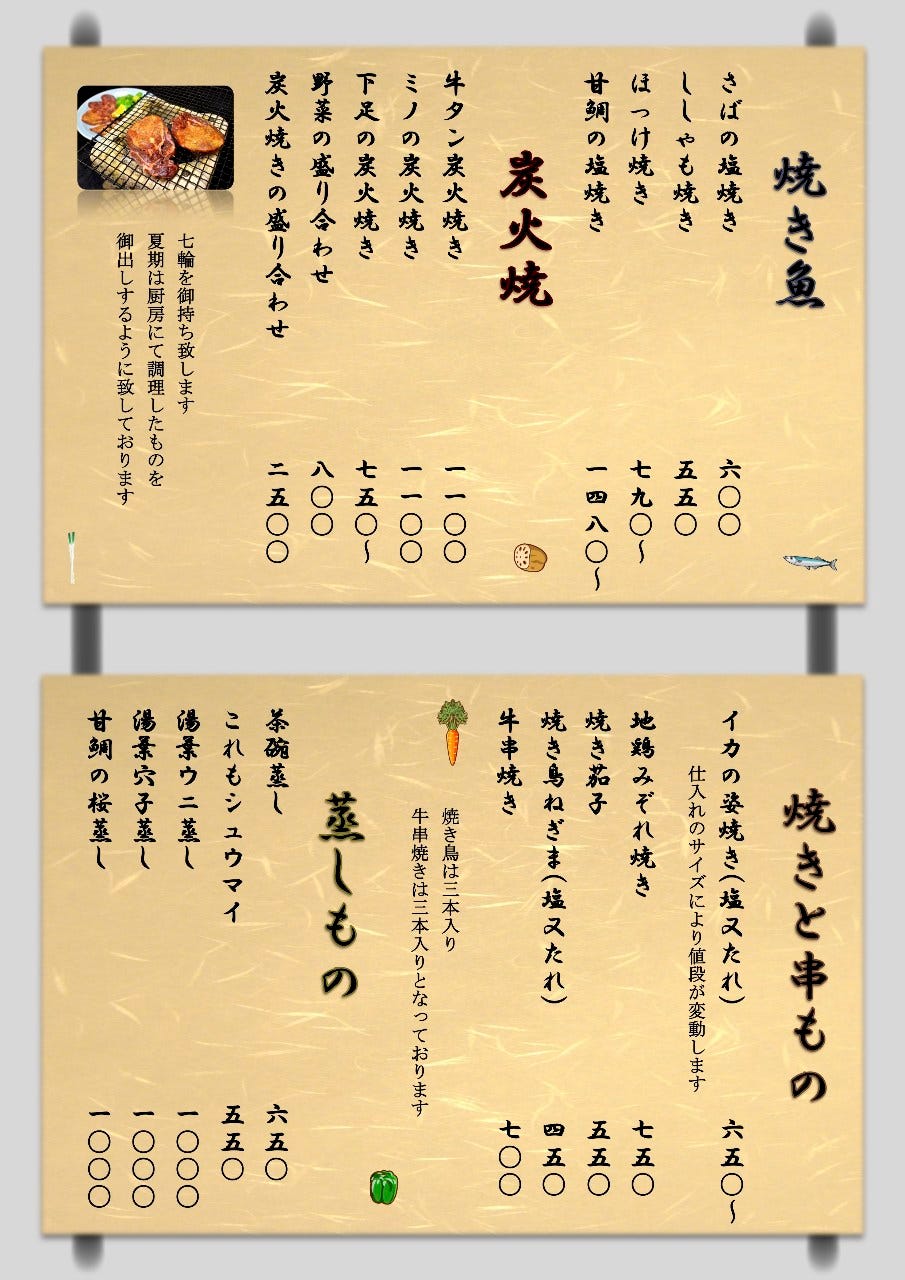 焼き魚
さばの塩焼き 六〇〇
ししゃも焼き 五五〇
ほっけ焼き 七九〇〜
甘鯛の塩焼き 一四八〇〜
炭火焼
牛タン炭火焼き 一一〇〇
ミノの炭火焼き 一一〇〇
下足の炭火焼き 七五〇〜
野菜の盛り合わせ 八〇〇
炭火焼きの盛り合わせ 二五〇〇
七輪を御持ち致します
夏期は厨房にて調理したものを
御出しするように致しております
焼きと串もの
イカの姿焼き(塩又たれ) 六五〇〜
仕入れのサイズにより値段が変動します
地鶏みぞれ焼き 七五〇
焼き茄子 五五〇
焼き鳥ねぎま(塩又たれ) 四五〇
牛串焼き 七〇〇
焼き鳥は三本入り
牛串焼きは三本入りとなっております
蒸しもの
茶碗蒸し 六五〇
これもシュウマイ 五五〇
湯葉ウニ蒸し 一〇〇〇
湯葉穴子蒸し 一〇〇〇
甘鯛の桜蒸し 一〇〇〇